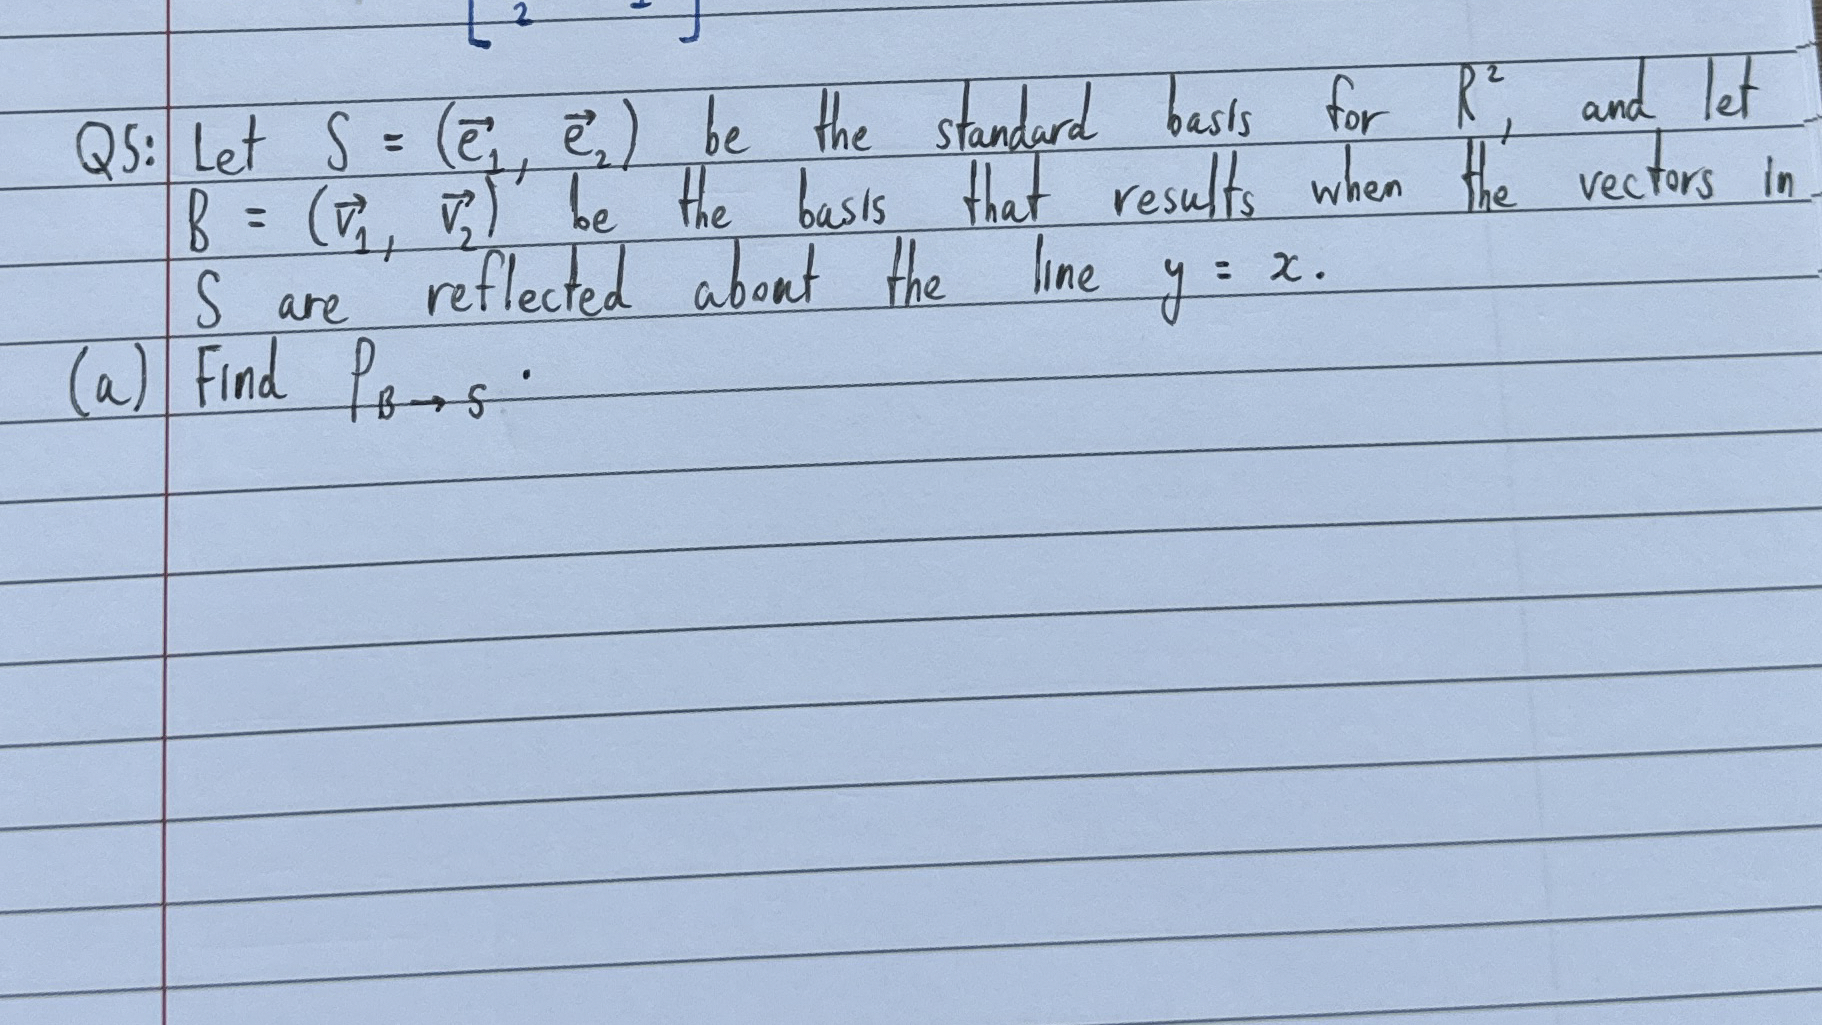 [ 2 ]
Q5: Let S = (e⃗₁, e⃗₂) be the standard basis for R², and let
B = (v⃗₁, v⃗₂) be the basis that results when the vectors in
S are reflected about the line y = x.
(a) Find P_{B→S}.